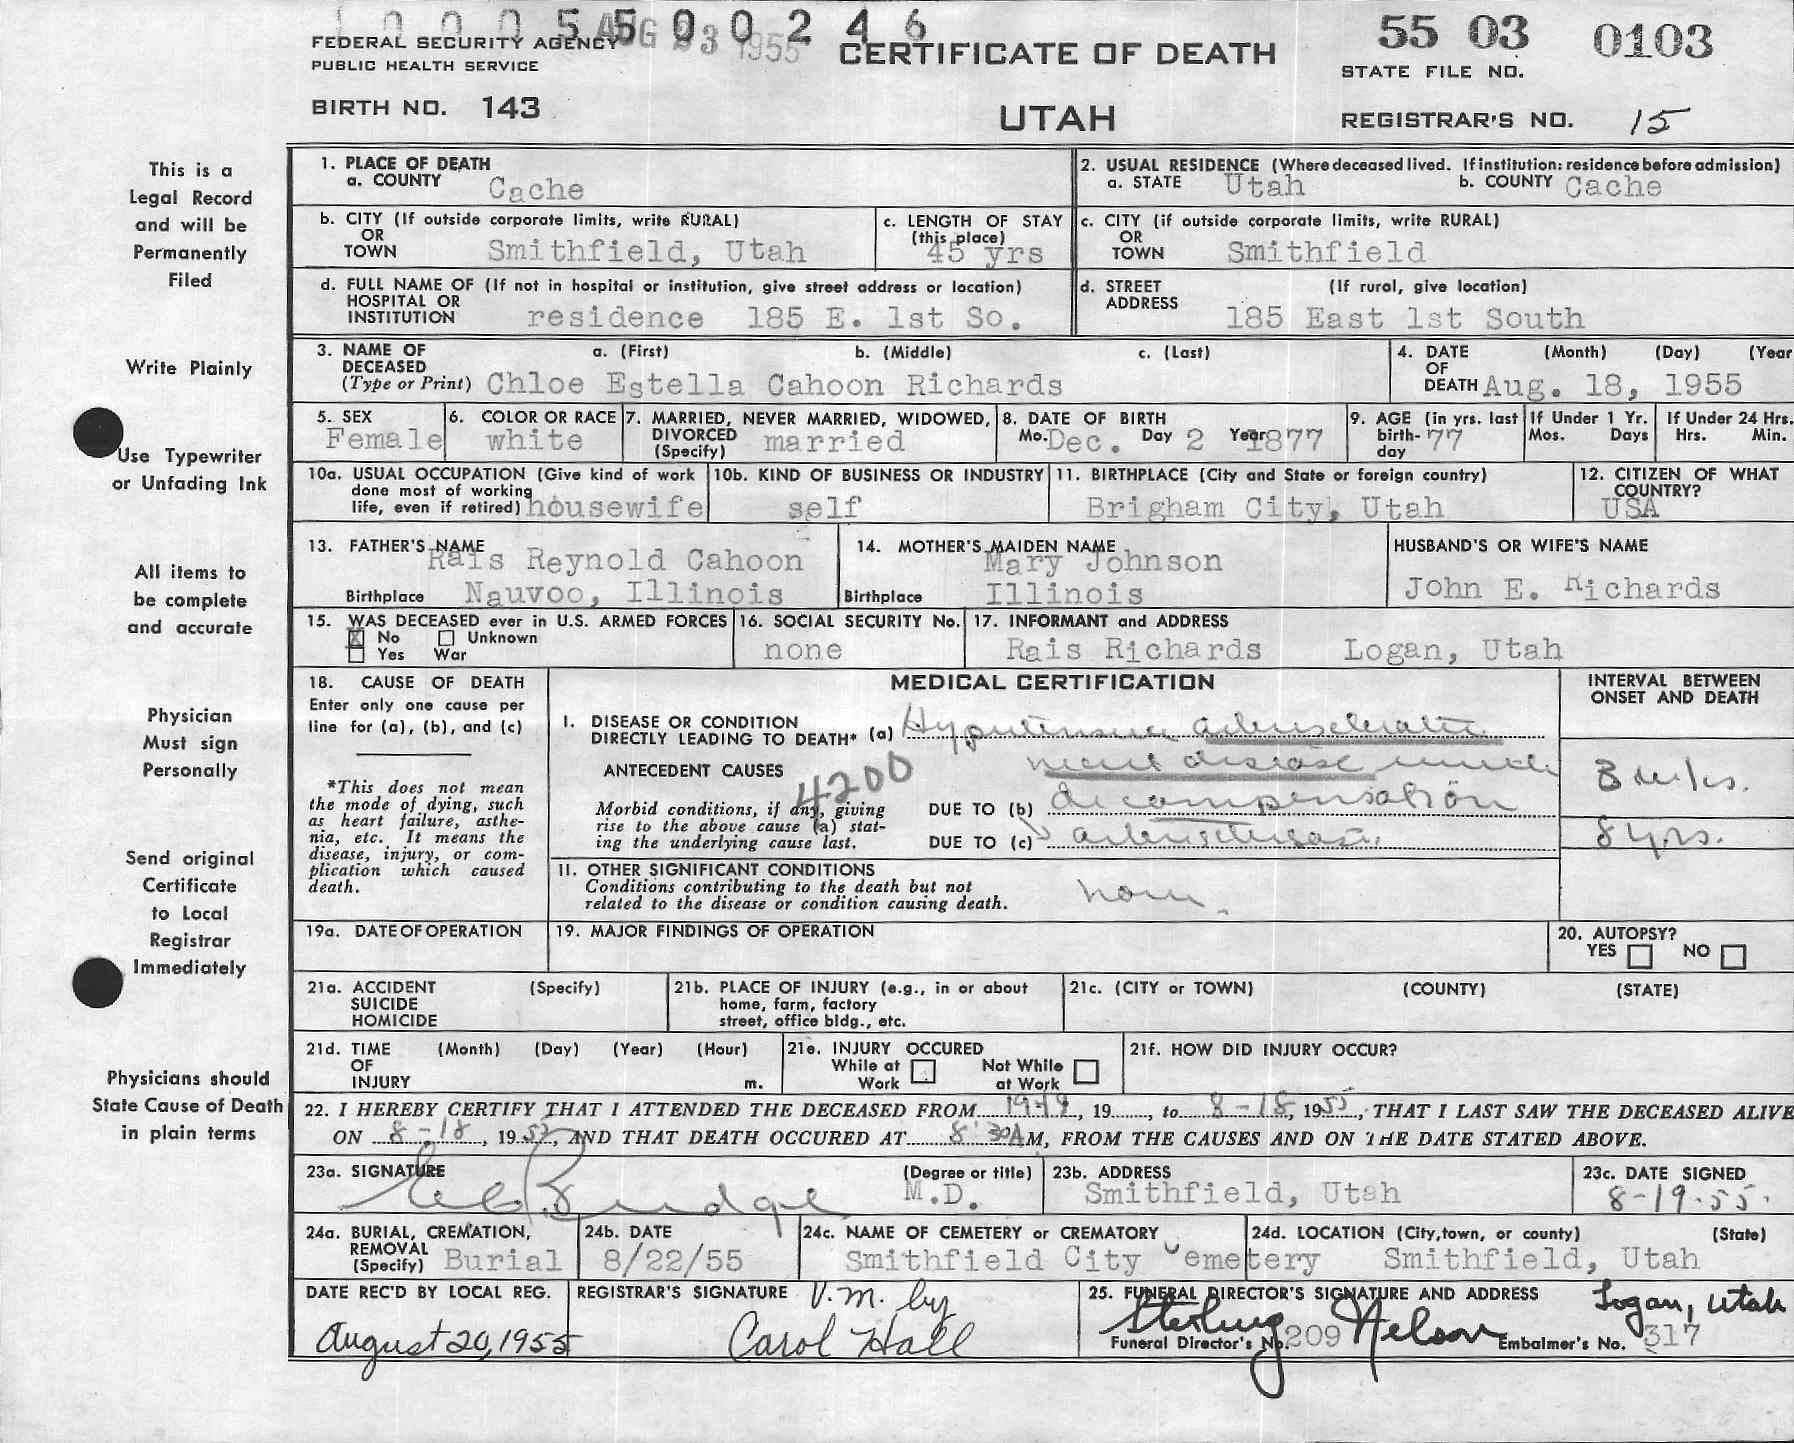 1 0 0 0 5 5 0 0 2 4 6
AUG 23 1955
FEDERAL SECURITY AGENCY
PUBLIC HEALTH SERVICE
CERTIFICATE OF DEATH
55 03 0103
STATE FILE NO.
BIRTH NO. 143
UTAH
REGISTRAR'S NO. 15
This is a
Legal Record
and will be
Permanently
Filed
Write Plainly
Use Typewriter
or Unfading Ink
All items to
be complete
and accurate
Physician
Must sign
Personally
Send original
Certificate
to Local
Registrar
Immediately
Physicians should
State Cause of Death
in plain terms
1. PLACE OF DEATH
a. COUNTY Cache
2. USUAL RESIDENCE (Where deceased lived. If institution: residence before admission)
a. STATE Utah b. COUNTY Cache
b. CITY (If outside corporate limits, write RURAL)
OR
TOWN Smithfield, Utah
c. LENGTH OF STAY
(this place)
45 yrs
c. CITY (if outside corporate limits, write RURAL)
OR
TOWN Smithfield
d. FULL NAME OF (If not in hospital or institution, give street address or location)
HOSPITAL OR
INSTITUTION residence 185 E. 1st So.
d. STREET (If rural, give location)
ADDRESS
185 East 1st South
3. NAME OF a. (First) b. (Middle) c. (Last)
DECEASED
(Type or Print) Chloe Estella Cahoon Richards
4. DATE (Month) (Day) (Year
OF
DEATH Aug. 18, 1955
5. SEX
Female
6. COLOR OR RACE
white
7. MARRIED, NEVER MARRIED, WIDOWED,
DIVORCED
(Specify) married
8. DATE OF BIRTH
Mo. Dec. Day 2 Year 1877
9. AGE (in yrs. last
birth-
day 77
If Under 1 Yr.
Mos. Days
If Under 24 Hrs.
Hrs. Min.
10a. USUAL OCCUPATION (Give kind of work
done most of working
life, even if retired) housewife
10b. KIND OF BUSINESS OR INDUSTRY
self
11. BIRTHPLACE (City and State or foreign country)
Brigham City, Utah
12. CITIZEN OF WHAT
COUNTRY?
USA
13. FATHER'S NAME
Rais Reynold Cahoon
Birthplace Nauvoo, Illinois
14. MOTHER'S MAIDEN NAME
Mary Johnson
Birthplace Illinois
HUSBAND'S OR WIFE'S NAME
John E. Richards
15. WAS DECEASED ever in U.S. ARMED FORCES
X No Unknown
Yes War
16. SOCIAL SECURITY No.
none
17. INFORMANT and ADDRESS
Rais Richards Logan, Utah
18. CAUSE OF DEATH
Enter only one cause per
line for (a), (b), and (c)
*This does not mean
the mode of dying, such
as heart failure, asthe-
nia, etc. It means the
disease, injury, or com-
plication which caused
death.
MEDICAL CERTIFICATION
INTERVAL BETWEEN
ONSET AND DEATH
I. DISEASE OR CONDITION
DIRECTLY LEADING TO DEATH* (a) Hypertensive arteriosclerotic
ANTECEDENT CAUSES heart disease
4200
Morbid conditions, if any, giving
rise to the above cause (a) stat-
ing the underlying cause last.
DUE TO (b) decompensation
3 wks.
DUE TO (c) arteriosclerosis
8 yrs.
II. OTHER SIGNIFICANT CONDITIONS
Conditions contributing to the death but not
related to the disease or condition causing death.
none
19a. DATE OF OPERATION
19. MAJOR FINDINGS OF OPERATION
20. AUTOPSY?
YES NO
21a. ACCIDENT (Specify)
SUICIDE
HOMICIDE
21b. PLACE OF INJURY (e.g., in or about
home, farm, factory
street, office bldg., etc.
21c. (CITY or TOWN) (COUNTY) (STATE)
21d. TIME (Month) (Day) (Year) (Hour)
OF
INJURY m.
21e. INJURY OCCURED
While at Not While
Work at Work
21f. HOW DID INJURY OCCUR?
22. I HEREBY CERTIFY THAT I ATTENDED THE DECEASED FROM 1949, 19, to 8-18, 1955, THAT I LAST SAW THE DECEASED ALIVE
ON 8-18, 1955, AND THAT DEATH OCCURED AT 8:30 AM, FROM THE CAUSES AND ON THE DATE STATED ABOVE.
23a. SIGNATURE (Degree or title)
Budge M.D.
23b. ADDRESS
Smithfield, Utah
23c. DATE SIGNED
8-19-55.
24a. BURIAL, CREMATION,
REMOVAL
(Specify) Burial
24b. DATE
8/22/55
24c. NAME OF CEMETERY or CREMATORY
Smithfield City Cemetery
24d. LOCATION (City, town, or county) (State)
Smithfield, Utah
DATE REC'D BY LOCAL REG.
August 20, 1955
REGISTRAR'S SIGNATURE V.M. by
Carol Hall
25. FUNERAL DIRECTOR'S SIGNATURE AND ADDRESS
Sterling Nelson Logan, Utah
Funeral Director's No. 209 Embalmer's No. 317